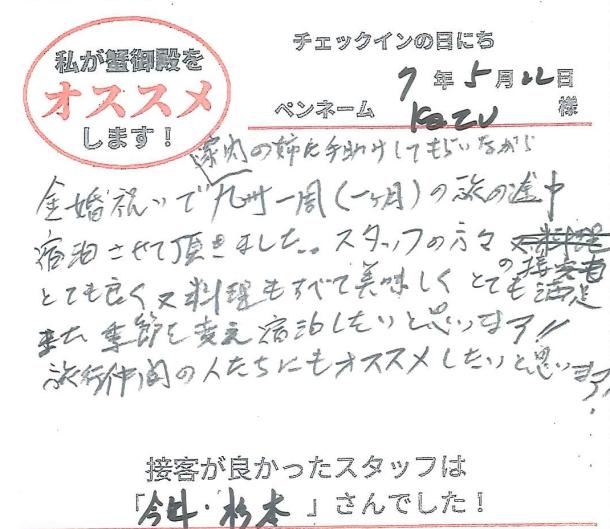 私が蟹御殿を
オススメ
します!
チェックインの日にち
7年5月22日
ペンネーム Kazu 様
の姉に手助けしてもらいながら
金婚祝いで九州一周(一ヶ月)の旅の途中
宿泊させて頂きました。スタッフの方々
の接客も
とても良く又料理もすべて美味しくとても満足
また季節を変え宿泊したいと思います!!
旅行仲間の人たちにもオススメしたいと思います!
接客が良かったスタッフは
「今井・杉本」さんでした!